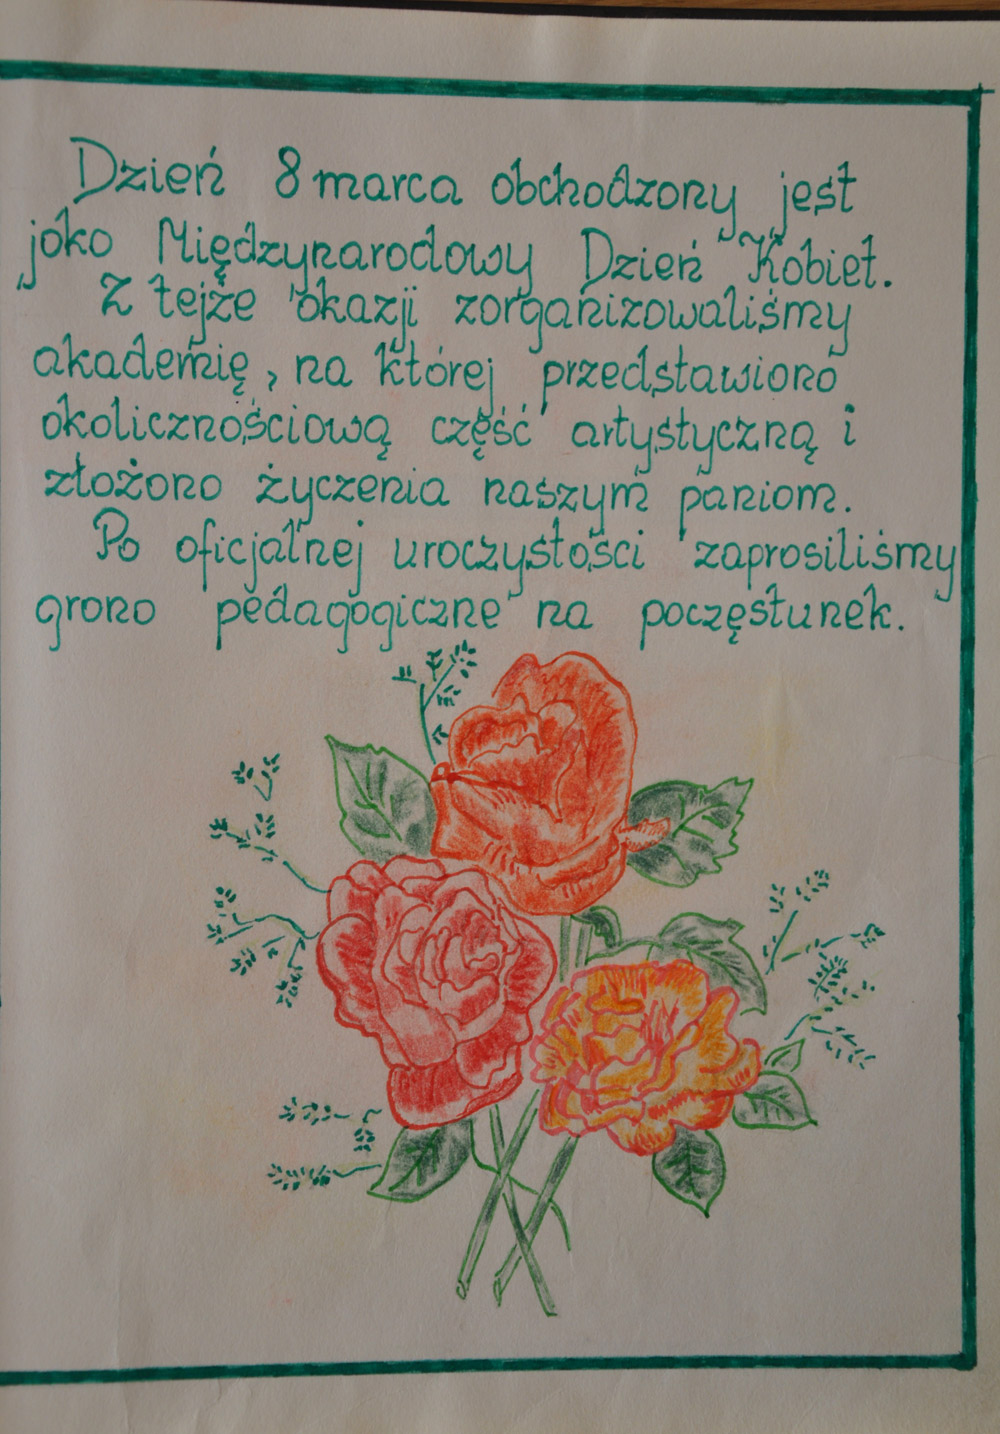 Dzień 8 marca obchodzony jest
joko Międzynarodowy Dzień Kobiet.
Z tejże okazji zorganizowaliśmy
akademię, na której przedstawiono
okolicznościową część artystyczną i
złożono życzenia naszym paniom.
Po oficjalnej uroczystości zaprosiliśmy
grono pedagogiczne na poczęstunek.